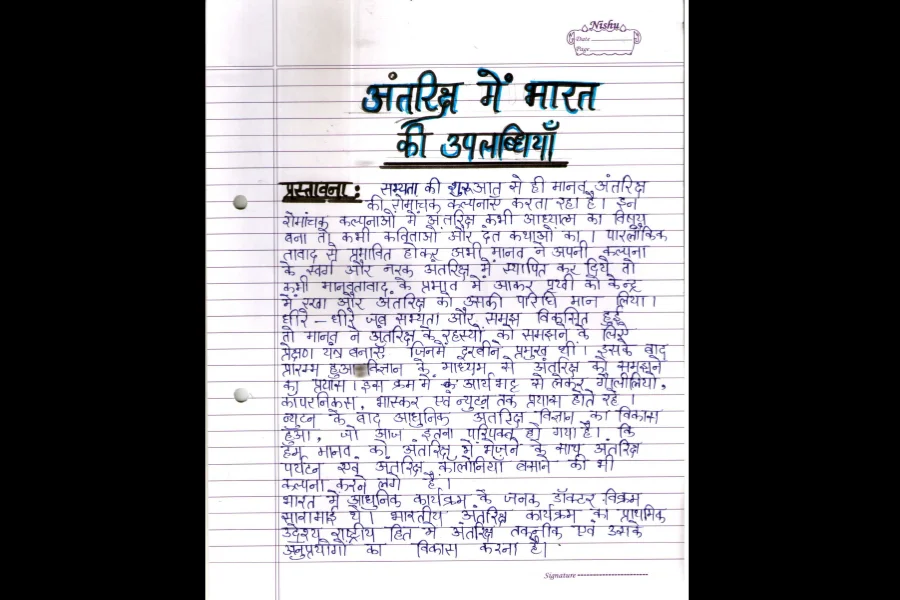 Nishu
Date
Page
अंतरिक्ष में भारत
की उपलब्धियाँ
प्रस्तावना : सभ्यता की शुरूआत से ही मानव अंतरिक्ष
की रोमांचक कल्पनाएं करता रहा है। इन
रोमांचक कल्पनाओं में अंतरिक्ष कभी आध्यात्म का विषय
बना तो कभी कविताओं और दंत कथाओं का। पारलौकिक
तावाद से प्रभावित होकर अभी मानव ने अपनी कल्पना
के स्वर्ग और नरक अंतरिक्ष में स्थापित कर दिये तो
कभी मानवतावाद के प्रभाव में आकर पृथ्वी को केन्द्र
में रखा और अंतरिक्ष को उसकी परिधि मान लिया।
धीरे – धीरे जब सभ्यता और समझ विकसित हुई
तो मानव ने अंतरिक्ष के रहस्यों को समझने के लिए
प्रेक्षण यंत्र बनाएं जिनमें दूरबीने प्रमुख थी। इसके बाद
प्रारम्भ हुआ विज्ञान के माध्यम से अंतरिक्ष को समझने
का प्रयास। इस क्रम में आर्यभट्ट से लेकर गैलीलियो,
कॉपरनिकस, भास्कर एवं न्युटन तक प्रयास होते रहे।
न्युटन के बाद आधुनिक अंतरिक्ष विज्ञान का विकास
हुआ, जो आज इतना परिपक्व हो गया है। कि
हम मानव को अंतरिक्ष में भेजने के साथ अंतरिक्ष
पर्यटन एवं अंतरिक्ष कालोनियां बसाने की भी
कल्पना करने लगे है।
भारत में आधुनिक कार्यक्रम के जनक डॉक्टर विक्रम
साराभाई थे। भारतीय अंतरिक्ष कार्यक्रम का प्राथमिक
उद्देश्य राष्ट्रीय हित में अंतरिक्ष तकनीक एवं उसके
अनुप्रयोगों का विकास करना है।
Signature